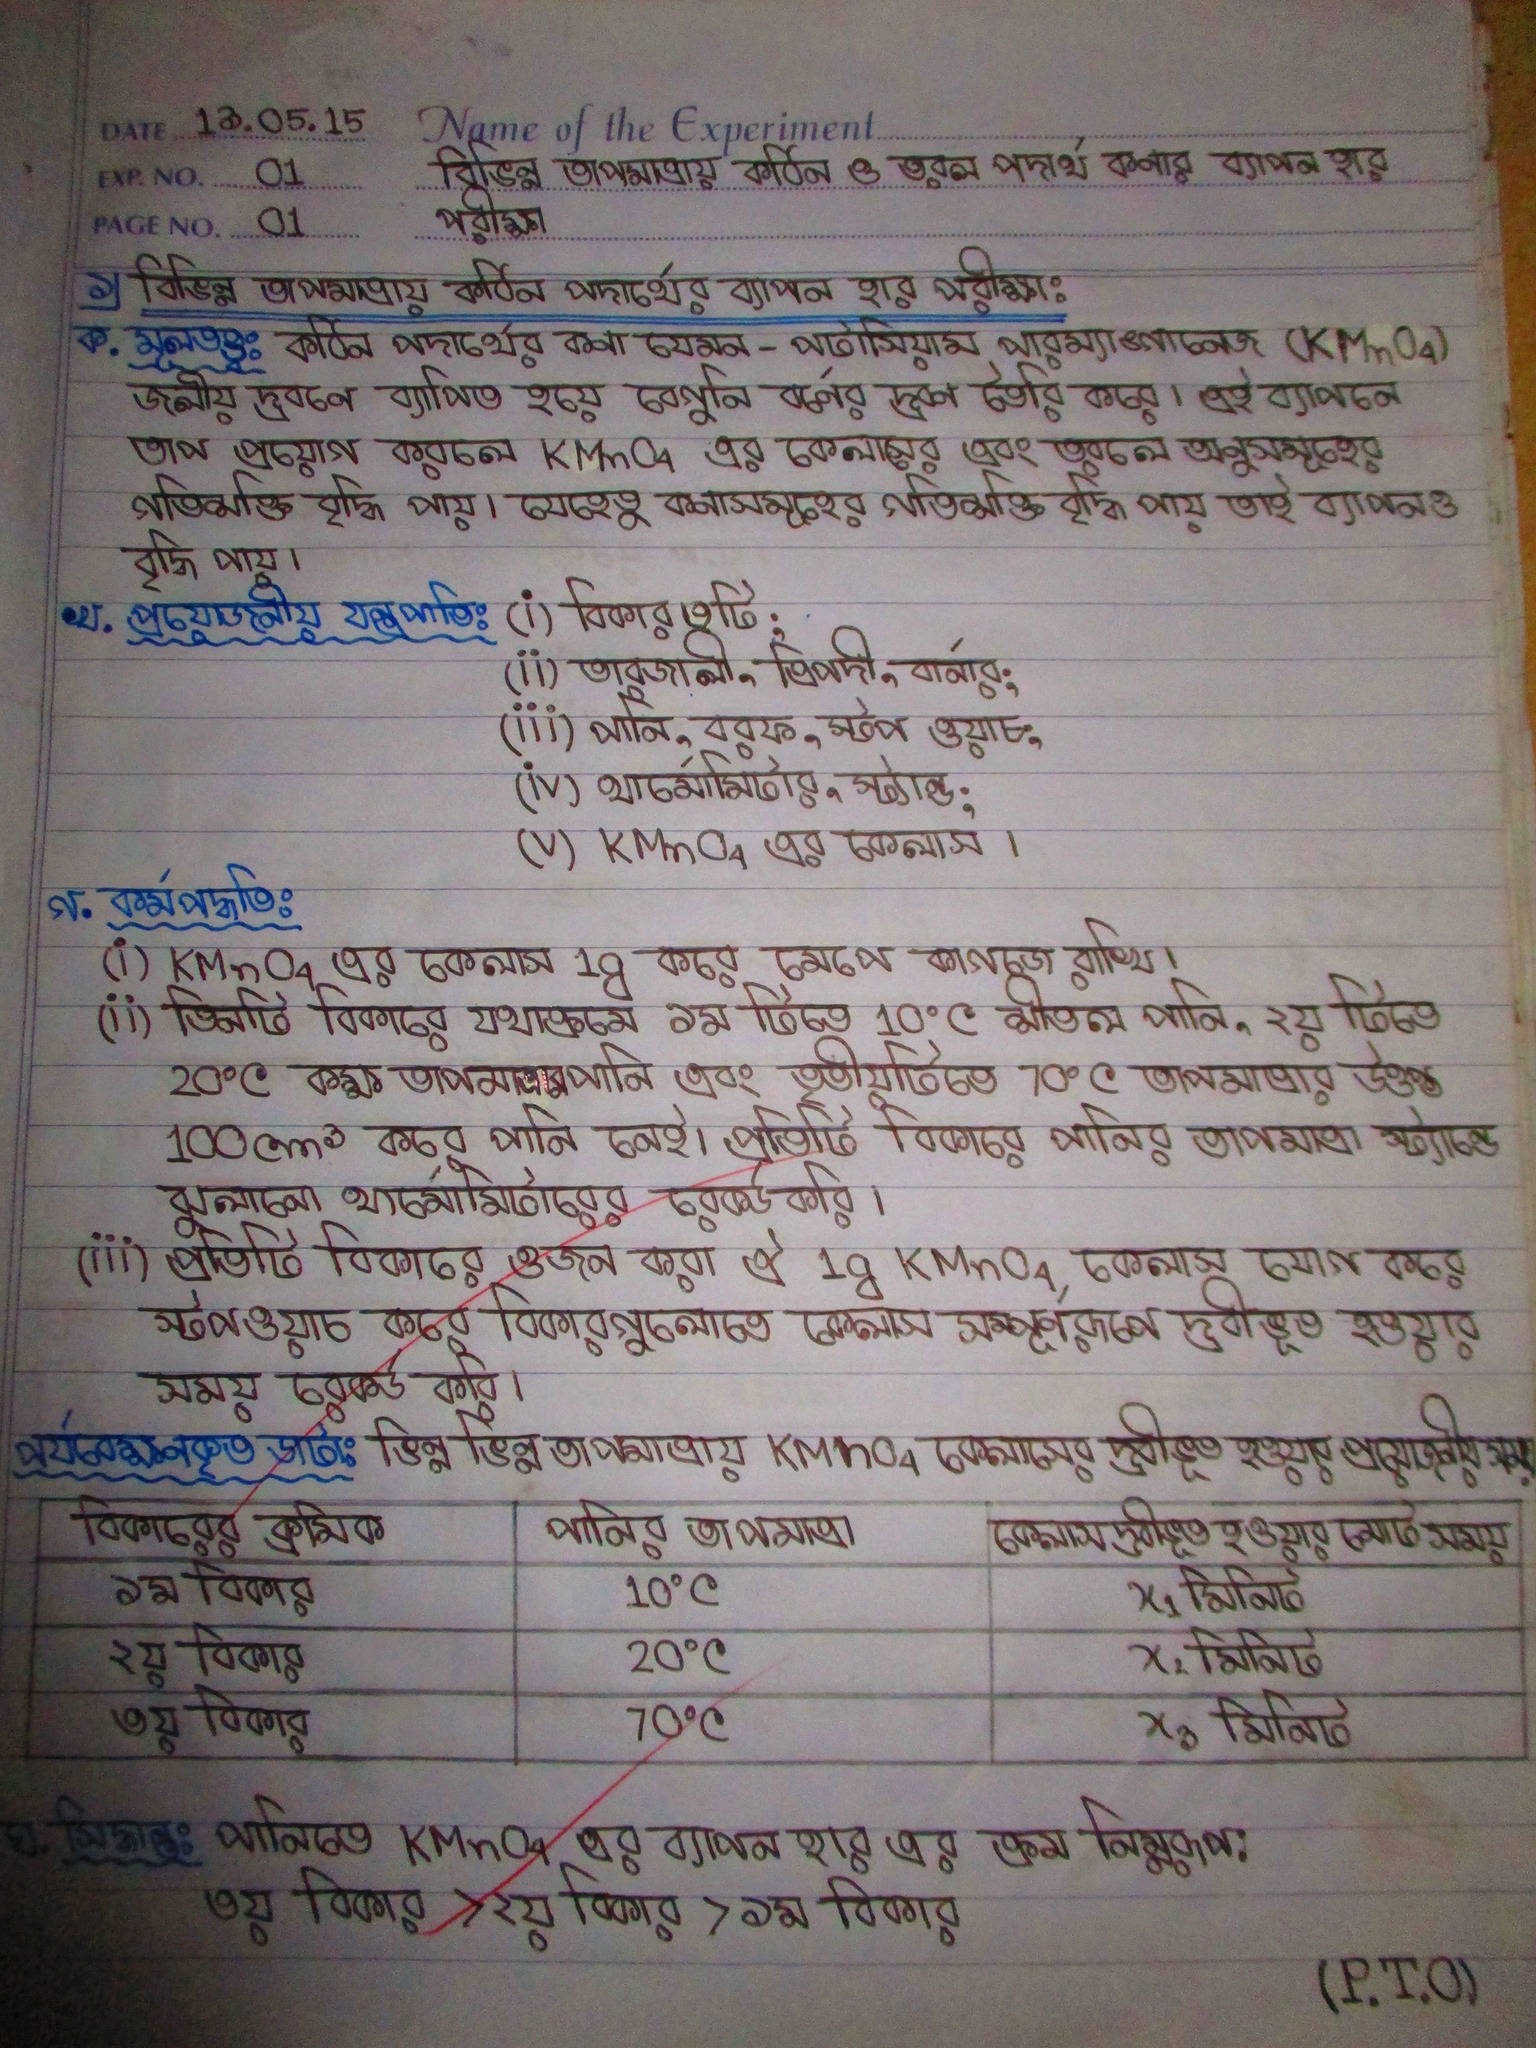 DATE 13.05.15 Name of the Experiment
EXP. NO. 01 বিভিন্ন তাপমাত্রায় কঠিন ও তরল পদার্থ কনার ব্যাপন হার
PAGE NO. 01 পরীক্ষা
১) বিভিন্ন তাপমাত্রায় কঠিন পদার্থের ব্যাপন হার পরীক্ষাঃ
ক. মূলতত্ত্বঃ কঠিন পদার্থের কনা যেমন - পটাসিয়াম পারম্যাঙ্গানেজ (KMnO4)
জলীয় দ্রবনে ব্যাপিত হয়ে বেগুনি বর্নের দ্রবণ তৈরি করে। এই ব্যাপনে
তাপ প্রয়োগ করলে KMnO4 এর কেলাসের এবং তরলে অনুসমূহের
গতিশক্তি বৃদ্ধি পায়। যেহেতু কনাসমূহের গতিশক্তি বৃদ্ধি পায় তাই ব্যাপনও
বৃদ্ধি পায়।
খ. প্রয়োজনীয় যন্ত্রপাতিঃ (i) বিকার ৩টি;
(ii) তারজালী, ত্রিপদী, বার্নার;
(iii) পানি, বরফ, স্টপ ওয়াচ;
(iv) থার্মোমিটার, স্ট্যান্ড;
(v) KMnO4 এর কেলাস ।
গ. কার্যপদ্ধতিঃ
(i) KMnO4 এর কেলাস 1g করে মেপে কাগজে রাখি।
(ii) তিনটি বিকারে যথাক্রমে ১ম টিতে 10°C শীতল পানি, ২য় টিতে
20°C কক্ষ তাপমাত্রার পানি এবং তৃতীয়টিতে 70°C তাপমাত্রার উত্তপ্ত
100cm³ করে পানি নেই। প্রতিটি বিকারে পানির তাপমাত্রা স্ট্যান্ডে
ঝুলানো থার্মোমিটারের রেকর্ড করি ।
(iii) প্রতিটি বিকারে ওজন করা ঐ 1g KMnO4 কেলাস যোগ করে
স্টপওয়াচ করে বিকারগুলোতে কেলাস সম্পূর্ণরূপে দ্রবীভূত হওয়ার
সময় রেকর্ড করি।
পর্যবেক্ষনকৃত ডাটাঃ ভিন্ন ভিন্ন তাপমাত্রায় KMnO4 কেলাসের দ্রবীভূত হওয়ার প্রয়োজনীয় সময়
বিকারের ক্রমিক পানির তাপমাত্রা কেলাস দ্রবীভূত হওয়ার মোট সময়
১ম বিকার 10°C x1 মিনিট
২য় বিকার 20°C x2 মিনিট
৩য় বিকার 70°C x3 মিনিট
ঘ. সিদ্ধান্তঃ পানিতে KMnO4 এর ব্যাপন হার এর ক্রম নিম্নরূপ:
৩য় বিকার > ২য় বিকার > ১ম বিকার
(P.T.O)